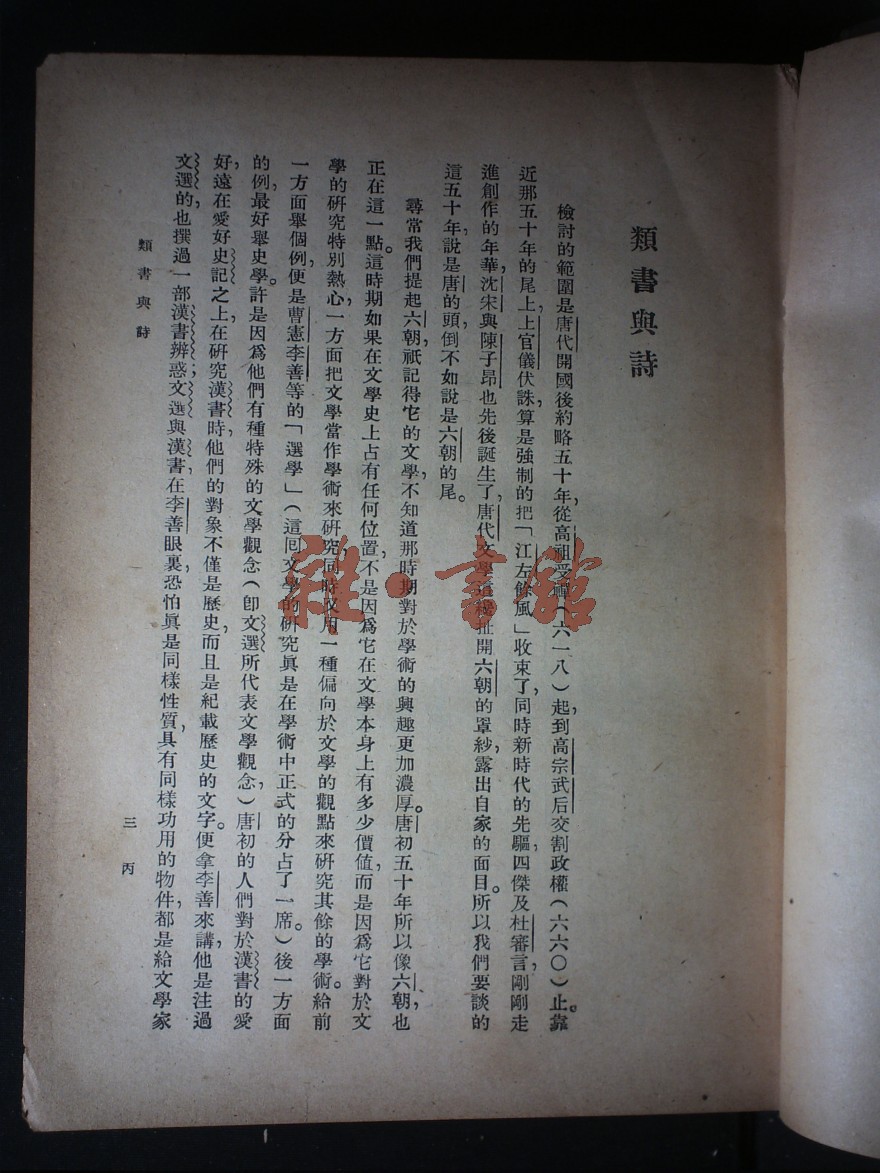 類書與詩
檢討的範圍是唐代開國後約略五十年，從高祖受禪（六一八）起，到高宗武后交割政權（六六〇）止。靠
近那五十年的尾上，上官儀伏誅，算是強制的把「江左餘風」收束了，同時新時代的先驅，四傑及杜審言，剛剛走
進創作的年華，沈宋與陳子昂也先後誕生了，唐代文學扯開六朝的罩紗，露出自家的面目。所以我們要談的
這五十年，說是唐的頭，倒不如說是六朝的尾。
尋常我們提起六朝，祇記得它的文學，不知道那時期對於學術的興趣更加濃厚。唐初五十年所以像六朝，也
正在這一點。這時期如果在文學史上占有任何位置，不是因爲它在文學本身上有多少價值，而是因爲它對於文
學的研究特別熱心，一方面把文學當作學術來研究，同時又用一種偏向於文學的觀點來研究其餘的學術。給前
一方面舉個例，便是曹憲李善等的「選學」（這回文學的研究眞是在學術中正式的分占了一席。）後一方面
的例，最好舉史學。許是因爲他們有種特殊的文學觀念（卽文選所代表文學觀念，）唐初的人們對於漢書的愛
好，遠在愛好史記之上，在研究漢書時，他們的對象不僅是歷史，而且是紀載歷史的文字。便拿李善來講，他是注過
文選的，也撰過一部漢書辨惑；文選與漢書，在李善眼裏，恐怕眞是同樣性質，具有同樣功用的物件，都是給文學家
類書與詩
三 丙
雜·書館